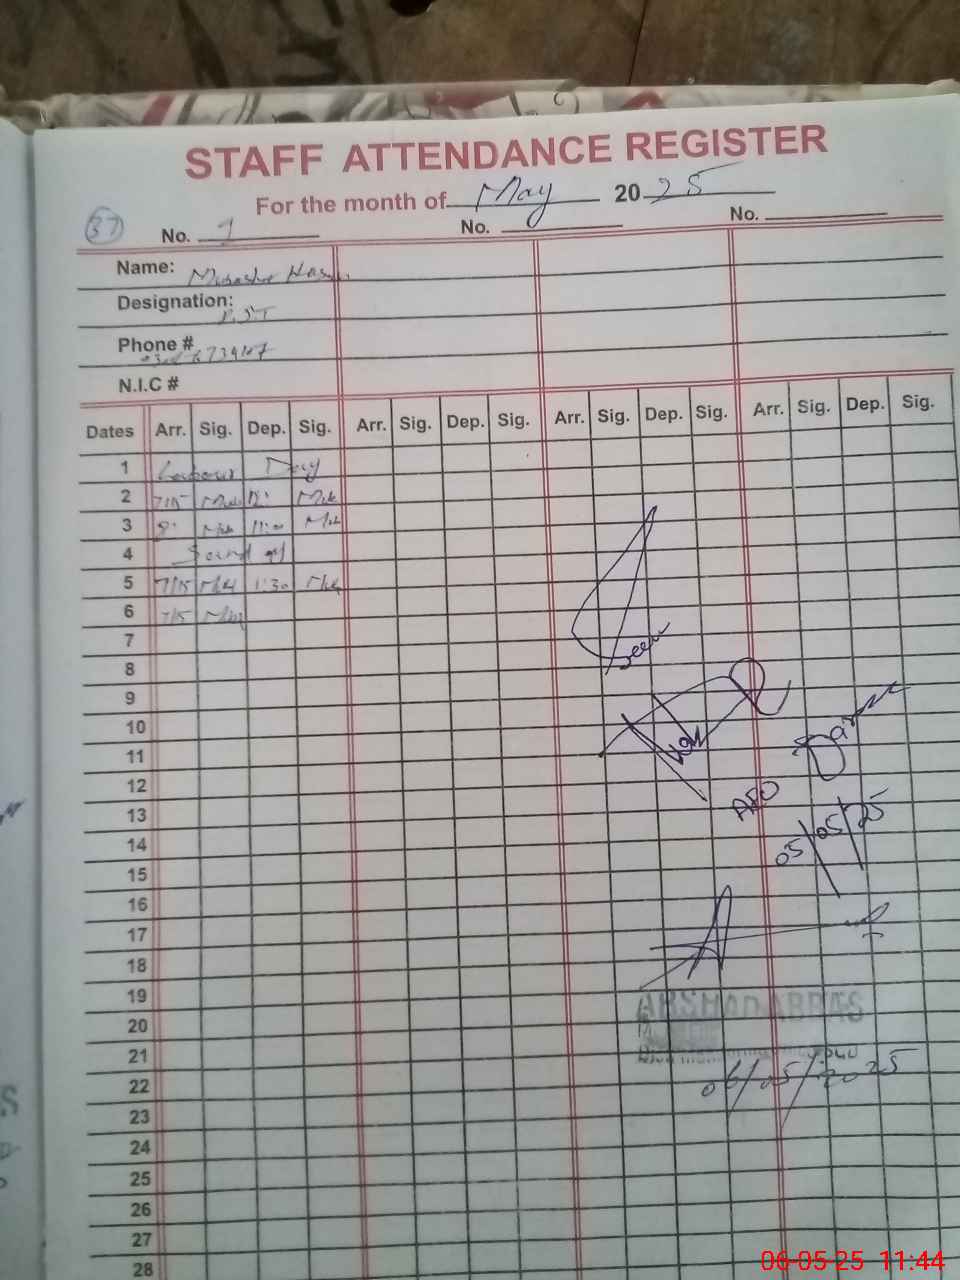 STAFF ATTENDANCE REGISTER
For the month of May 2025
37 No. 1 No. No.
Name:
Designation: P.S.T
Phone #
N.I.C #
Dates Arr. Sig. Dep. Sig. Arr. Sig. Dep. Sig. Arr. Sig. Dep. Sig. Arr. Sig. Dep. Sig.
1 Labour Day
2 7/15
3 8: 11:00
4
5 7/15 1:30
6 7/15
7
Seen
8
9
10
11
12
13
AEO
14
05/05/25
15
16
17
18
19
ARSHAD ABBAS
20
21
22
06/05/2025
23
24
25
26
27
28
06-05-25 11:44